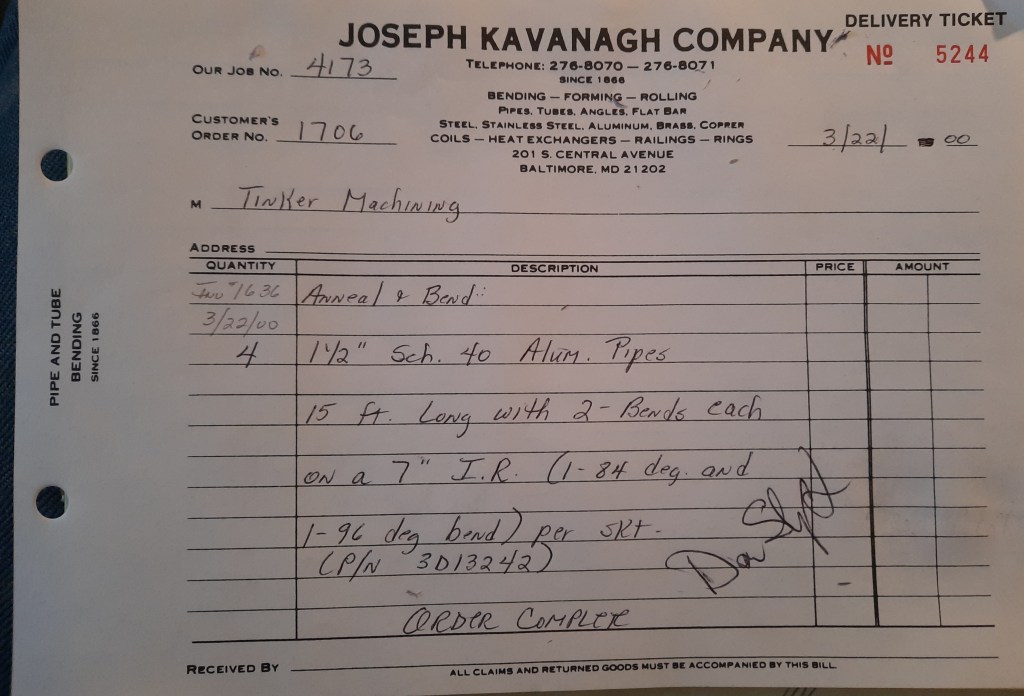 DELIVERY TICKET
JOSEPH KAVANAGH COMPANY
No 5244
OUR JOB NO. 4173
TELEPHONE: 276-8070 — 276-8071
SINCE 1866
BENDING — FORMING — ROLLING
PIPES, TUBES, ANGLES, FLAT BAR
STEEL, STAINLESS STEEL, ALUMINUM, BRASS, COPPER
COILS — HEAT EXCHANGERS — RAILINGS — RINGS
201 S. CENTRAL AVENUE
BALTIMORE, MD 21202
CUSTOMER'S
ORDER NO. 1706
3/22/ 00
M Tinker Machining
ADDRESS
QUANTITY DESCRIPTION PRICE AMOUNT
Inv # 1636 Anneal & Bend:
3/22/00
4 1 1/2" Sch. 40 Alum. Pipes
15 ft. Long with 2-Bends each
on a 7" I.R. (1-84 deg. and
1-96 deg bend) per skt-
(P/N 3D13242)
ORDER COMPLETE
RECEIVED BY
ALL CLAIMS AND RETURNED GOODS MUST BE ACCOMPANIED BY THIS BILL.
PIPE AND TUBE
BENDING
SINCE 1866